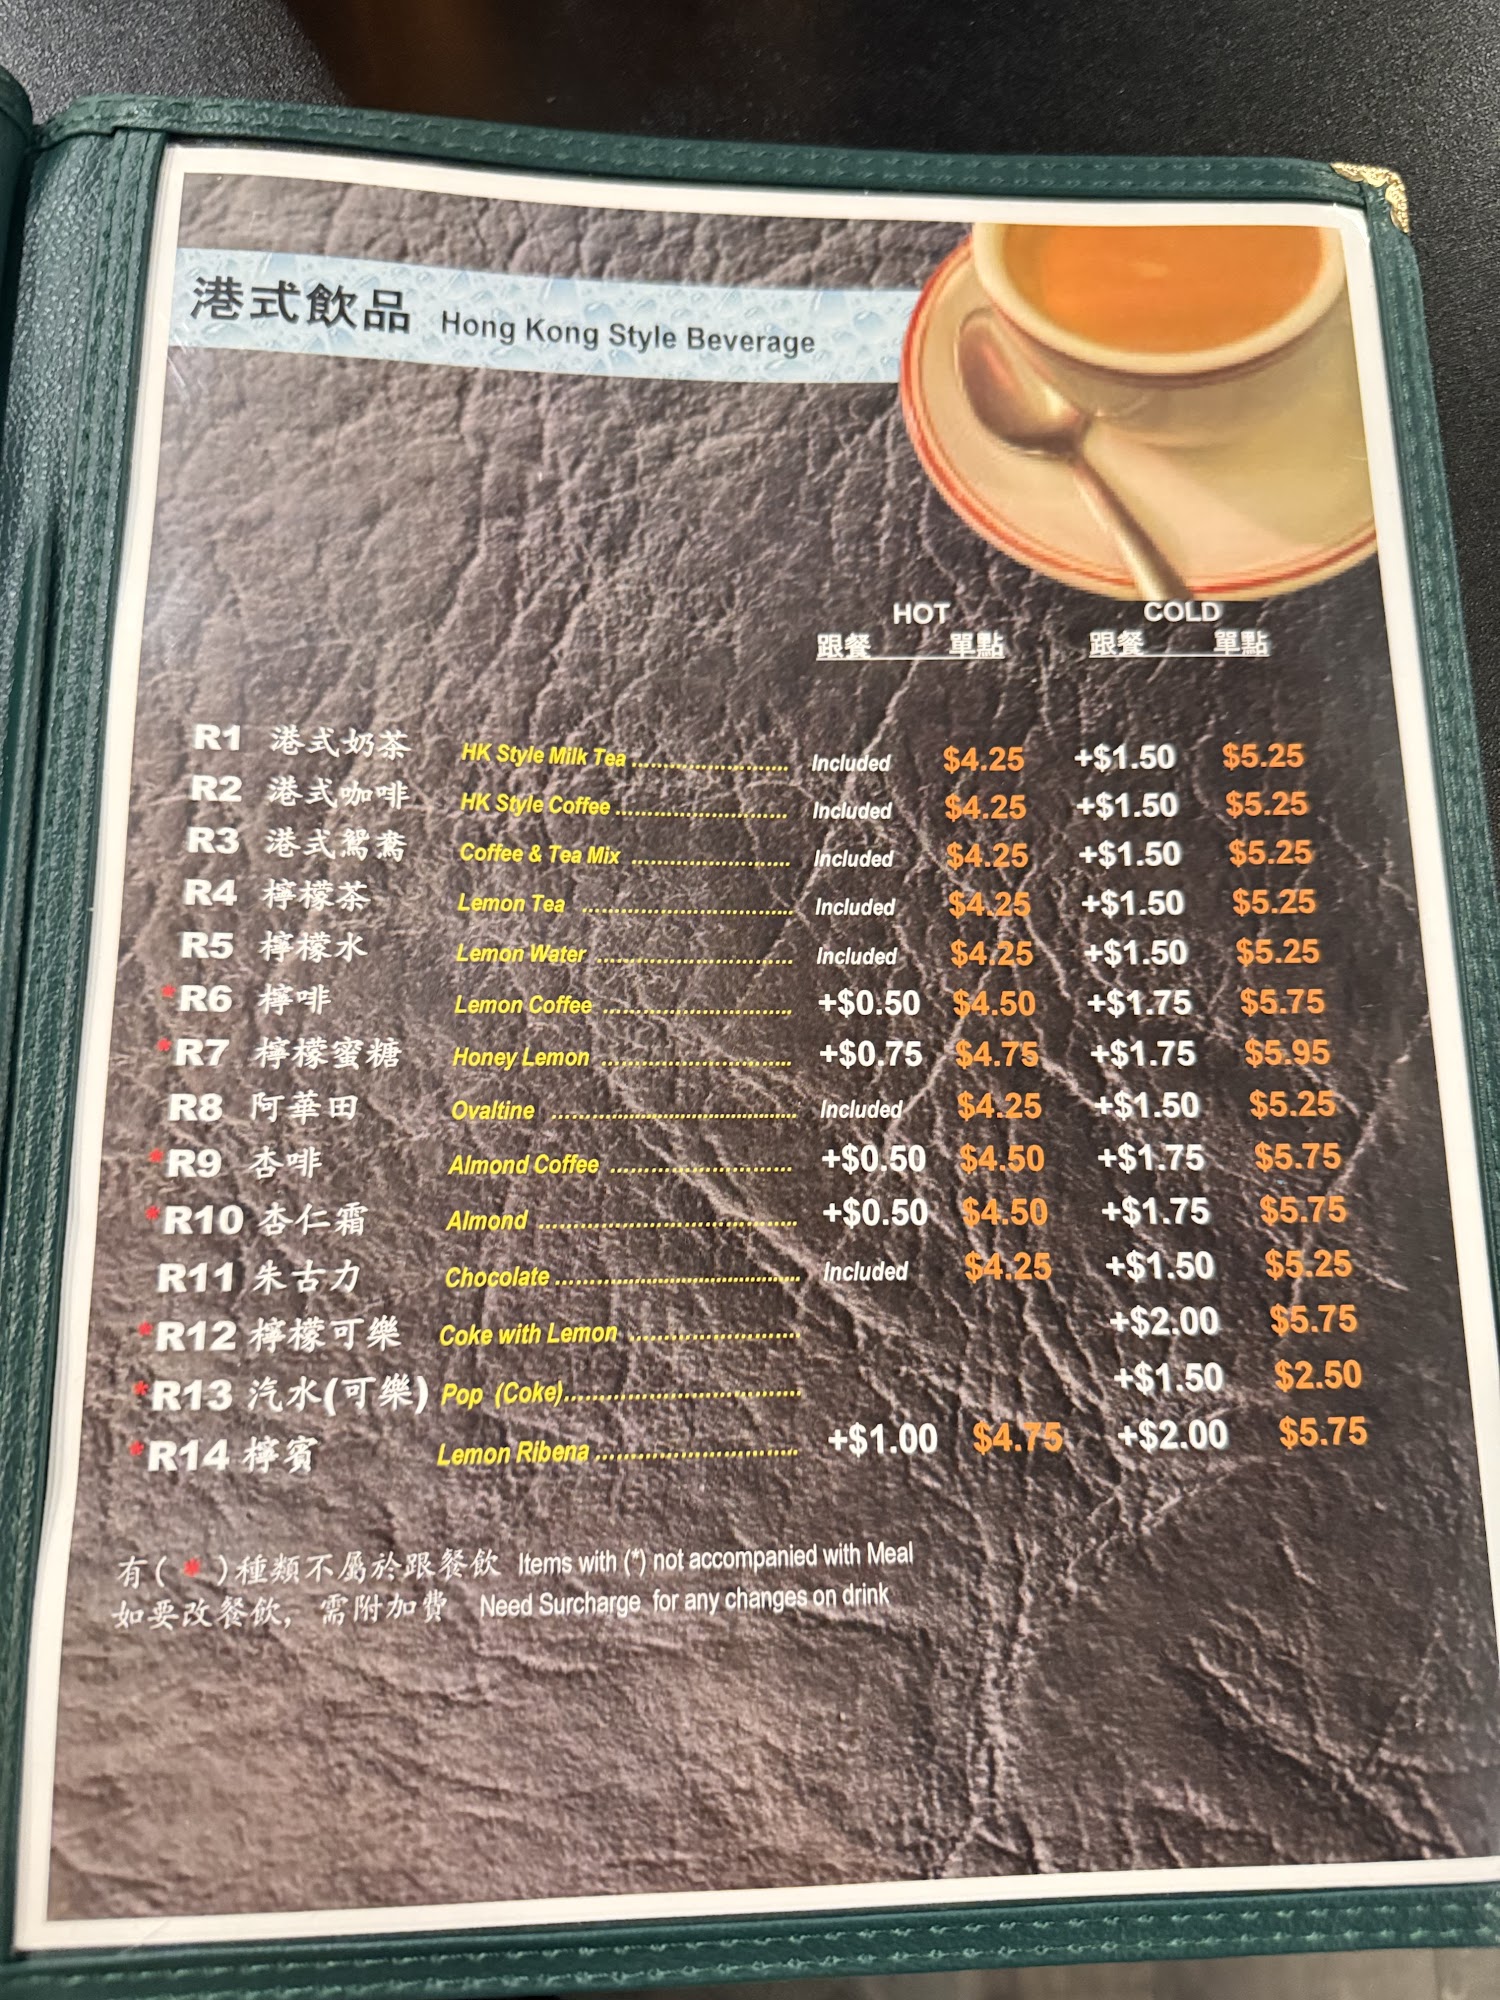 港式飲品 Hong Kong Style Beverage
HOT COLD
跟餐 單點 跟餐 單點
R1 港式奶茶 HK Style Milk Tea Included $4.25 +$1.50 $5.25
R2 港式咖啡 HK Style Coffee Included $4.25 +$1.50 $5.25
R3 港式鴛鴦 Coffee & Tea Mix Included $4.25 +$1.50 $5.25
R4 檸檬茶 Lemon Tea Included $4.25 +$1.50 $5.25
R5 檸檬水 Lemon Water Included $4.25 +$1.50 $5.25
*R6 檸啡 Lemon Coffee +$0.50 $4.50 +$1.75 $5.75
*R7 檸檬蜜糖 Honey Lemon +$0.75 $4.75 +$1.75 $5.95
R8 阿華田 Ovaltine Included $4.25 +$1.50 $5.25
*R9 杏啡 Almond Coffee +$0.50 $4.50 +$1.75 $5.75
*R10 杏仁霜 Almond +$0.50 $4.50 +$1.75 $5.75
R11 朱古力 Chocolate Included $4.25 +$1.50 $5.25
*R12 檸檬可樂 Coke with Lemon +$2.00 $5.75
*R13 汽水(可樂) Pop (Coke) +$1.50 $2.50
*R14 檸賓 Lemon Ribena +$1.00 $4.75 +$2.00 $5.75
有( * )種類不屬於跟餐飲 Items with (*) not accompanied with Meal
如要改餐飲, 需附加費 Need Surcharge for any changes on drink